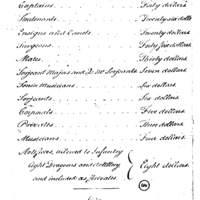 Captains Forty dollars.
Lieutenants Twenty six dolls
Ensigns and Cornets Twenty dollars.
Surgeons Forty five dollars.
Mates Thirty dollars.
Serjeant Majors and Qr Mr Serjeants Seven dollars.
Senior Musicians Six dollars.
Serjeants Six dollars.
Corporals Five dollars.
Privates Three dollars.
Musicians Four dollars.
Artificers, allowed to Infantry
Light Dragoons and Artillery Eight dollars.
and included as Privates